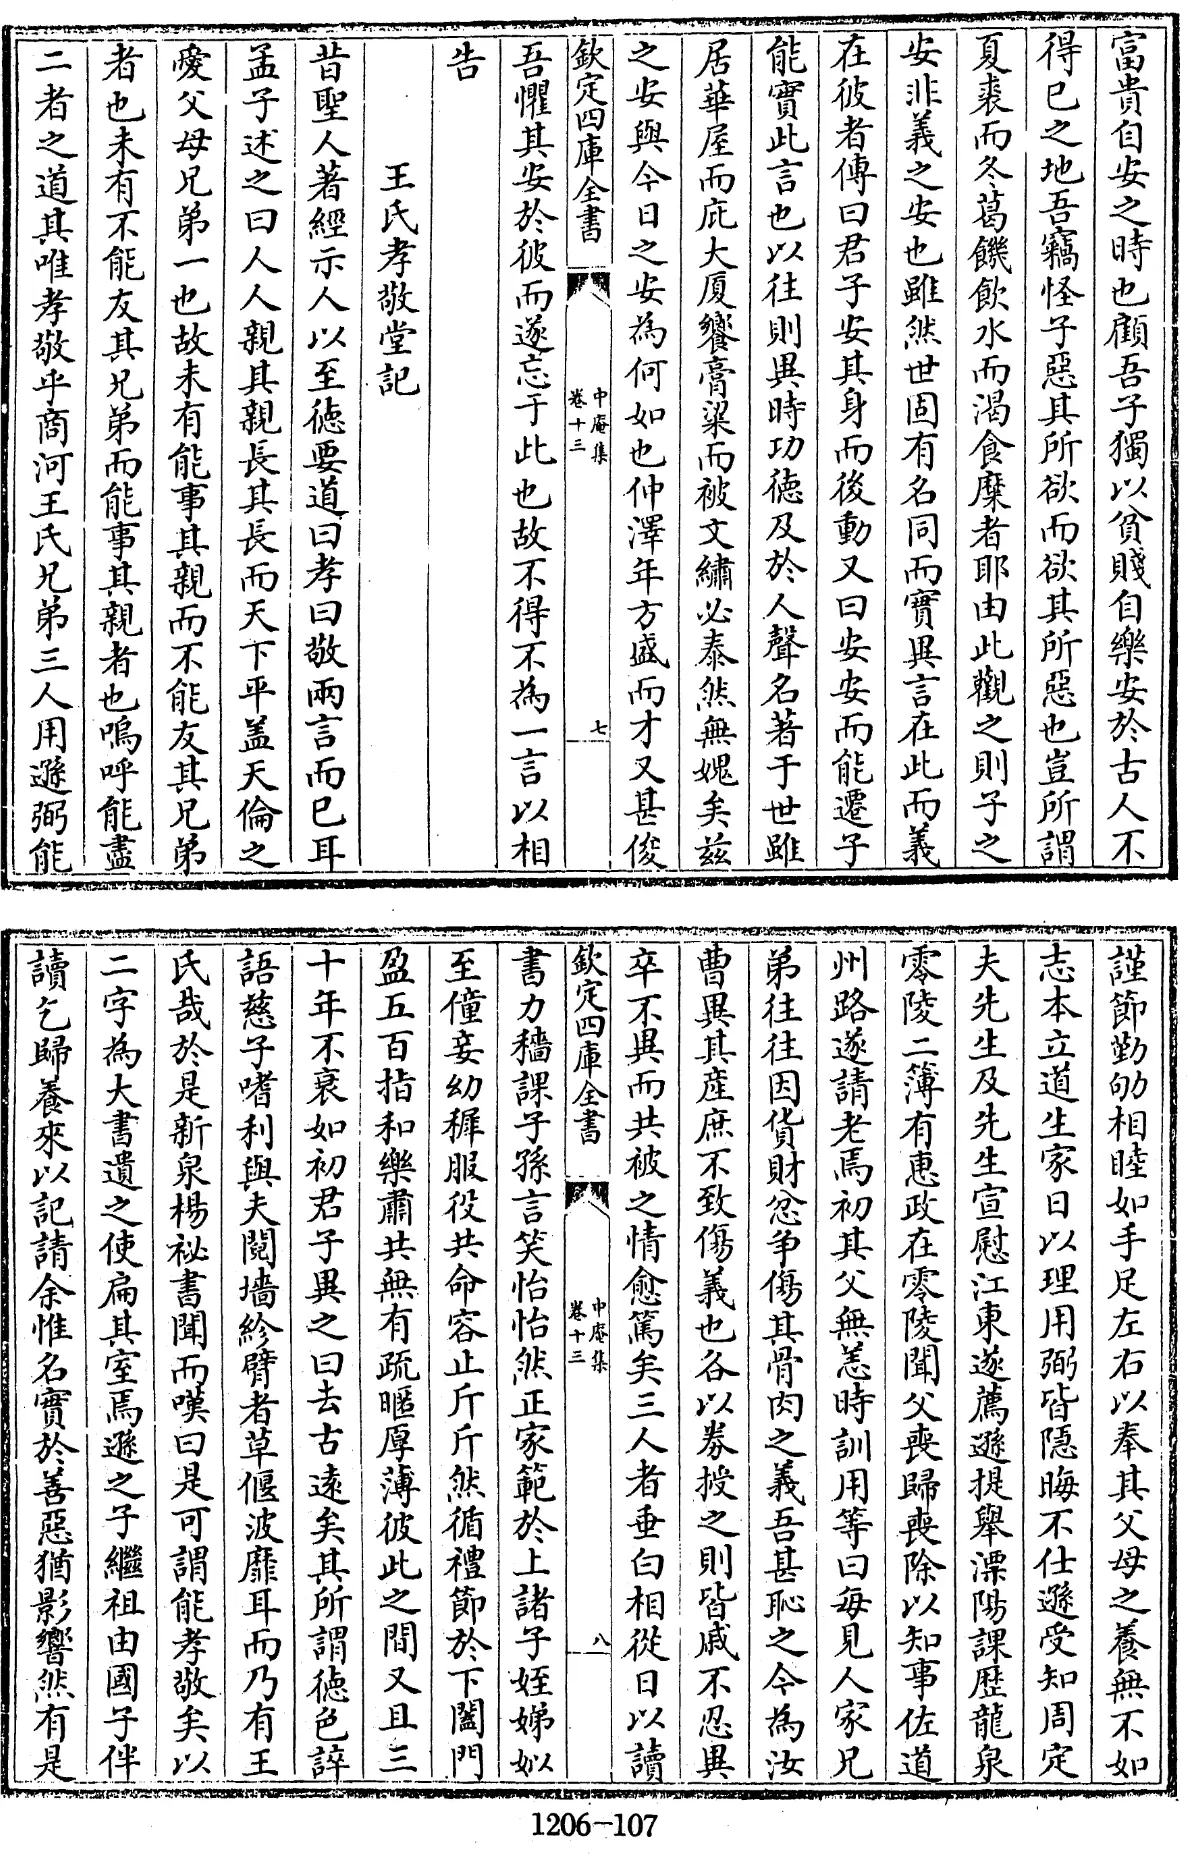 富貴自安之時也顧吾子獨以貧賤自樂安於古人不
得已之地吾竊怪子惡其所欲而欲其所惡也豈所謂
夏裘而冬葛饑飲水而渴食糜者耶由此觀之則子之
安非義之安也雖然世固有名同而實異言在此而義
在彼者傳曰君子安其身而後動又曰安安而能遷子
能實此言也以往則異時功德及於人聲名著于世雖
居華屋而庇大厦饗膏粱而被文繡必泰然無媿矣兹
之安與今日之安為何如也仲澤年方盛而才又甚俊
欽定四庫全書
中庵集
卷十三
七
吾懼其安於彼而遂忘于此也故不得不為一言以相
告
王氏孝敬堂記
昔聖人著經示人以至德要道曰孝曰敬兩言而已耳
孟子述之曰人人親其親長其長而天下平盖天倫之
愛父母兄弟一也故未有能事其親而不能友其兄弟
者也未有不能友其兄弟而能事其親者也嗚呼能盡
二者之道其唯孝敬乎商河王氏兄弟三人用遜弼能
謹節勤劬相睦如手足左右以奉其父母之養無不如
志本立道生家日以理用弼皆隱晦不仕遜受知周定
夫先生及先生宣慰江東遂薦遜提舉溧陽課歷龍泉
零陵二簿有惠政在零陵聞父喪歸喪除以知事佐道
州路遂請老焉初其父無恙時訓用等曰每見人家兄
弟往往因貨財忿争傷其骨肉之義吾甚恥之今為汝
曹異其産庶不致傷義也各以券授之則皆戚不忍異
卒不異而共被之情愈篤矣三人者垂白相從日以讀
欽定四庫全書
中庵集
卷十三
八
書力穡課子孫言笑怡怡然正家範於上諸子姪娣姒
至僮妾幼穉服役共命容止斤斤然循禮節於下闔門
盈五百指和樂肅共無有疏暱厚薄彼此之間又且三
十年不衰如初君子異之曰去古遠矣其所謂德色誶
語慈子嗜利與夫鬩墻紾臂者草偃波靡耳而乃有王
氏哉於是新泉楊祕書聞而嘆曰是可謂能孝敬矣以
二字為大書遺之使扁其室焉遜之子繼祖由國子伴
讀乞歸養來以記請余惟名實於善惡猶影響然有是
1206-107